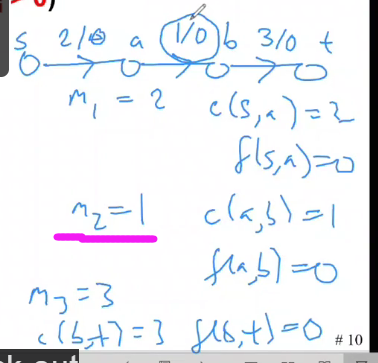 > 0)
s 2/0 a 1/0 b 3/0 t
m₁ = 2 c(s,a)=2
f(s,a)=0
m₂=1 c(a,b)=1
f(a,b)=0
m₃=3
c(b,t)=3 f(b,t)=0 #10